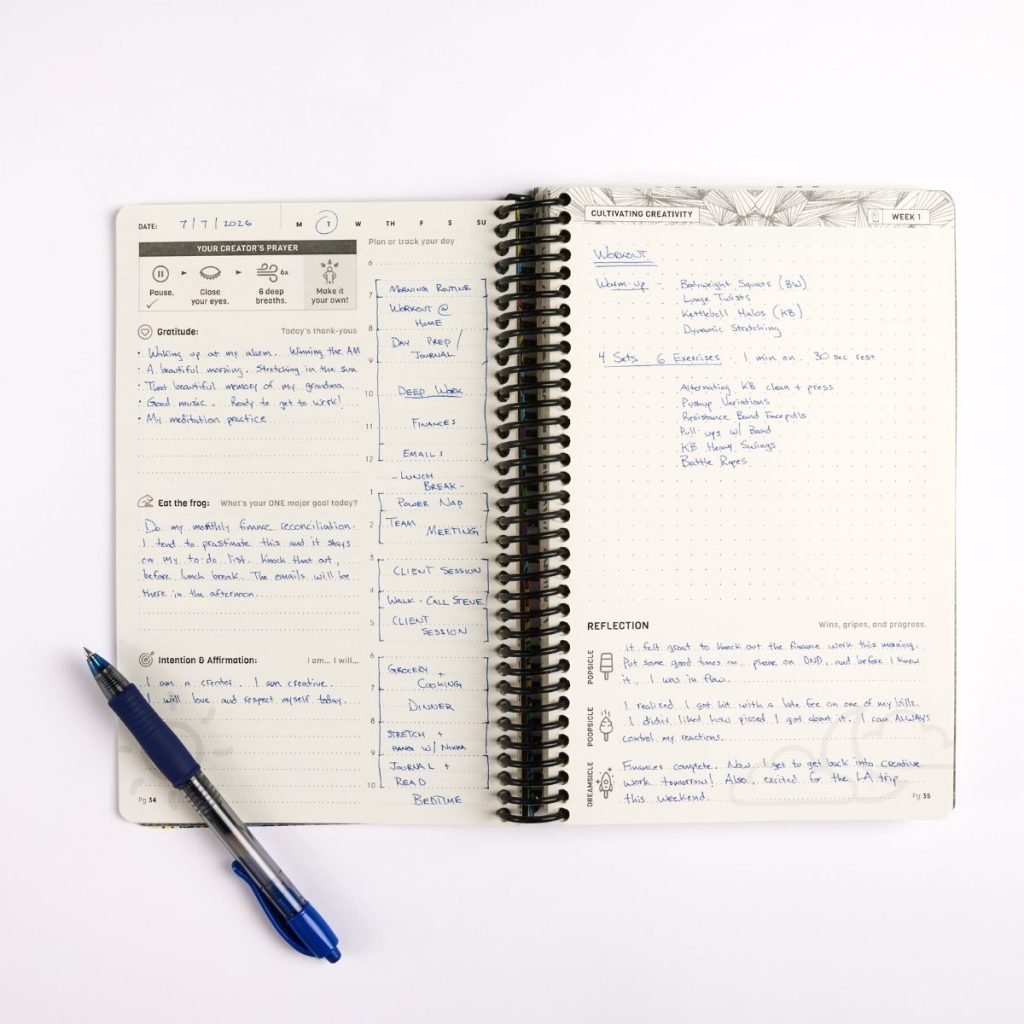 DATE: 7/7/2026 M T W TH F S SU
YOUR CREATOR'S PRAYER
6x
Pause. Close your eyes. 6 deep breaths. Make it your own!
Gratitude: Today's thank-yous
• Waking up at my alarm.. Winning the AM
• A beautiful morning.. Stretching in the sun
• That beautiful memory of my grandma...
• Good music... Ready to get to work!
• My meditation practice
Eat the frog: What's your ONE major goal today?
Do my monthly finance reconciliation.
I tend to prastinate this and it stays
on my to-do list. Knock that out,
before lunch break. The emails will be
there in the afternoon.
Intention & Affirmation: I am... I will...
I am a creator. I am creative.
I will love and respect myself today.
Pg 34
Plan or track your day
6
7
MORNING ROUTINE
WORKOUT @
8 HOME
DAY PREP /
9 JOURNAL
10 DEEP WORK
11 FINANCES
EMAILS
12
- LUNCH
BREAK -
1
POWER NAP
2 TEAM
MEETING
3
CLIENT SESSION
4 WALK - CALL STEVE
5 CLIENT
SESSION
6
GROCERY
+
7 COOKING
DINNER
8
STRETCH +
9 HANG W/
JOURNAL +
10 READ
BEDTIME
CULTIVATING CREATIVITY WEEK 1
WORKOUT
Warm-up - Bodyweight Squats (BW)
Lunge Twists
Kettlebell Halos (KB)
Dynamic Stretching
4 Sets 6 Exercises - 1 min on. 30 sec rest
Alternating KB clean + press
Pushup Variations
Resistance Band Facepulls
Pull-ups w/ Band
KB Heavy Swings
Battle Ropes
REFLECTION Wins, gripes, and progress.
POPSICLE
It felt great to knock out the finance work this morning.
Put some good times on, phone on DND, and before I knew
it, I was in flow.
POOPSICLE
I realized I got hit with a late fee on one of my bills.
I didn't liked how pissed I got about it. I can ALWAYS
control my reactions.
DREAMSICLE
Finances complete. Now I get to get back into creative
work tomorrow! Also, excited for the LA trip
this weekend.
Pg 35